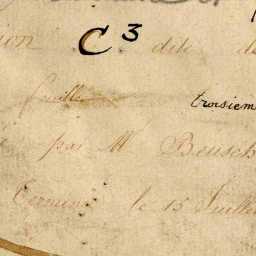 ion C³ dite d
feuille troisiem
par Mr Beusch
Terminé le 15 Juille